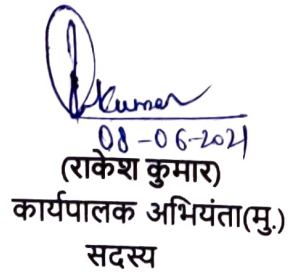 Rkumar
08-06-2021
(राकेश कुमार)
कार्यपालक अभियंता(मु.)
सदस्य